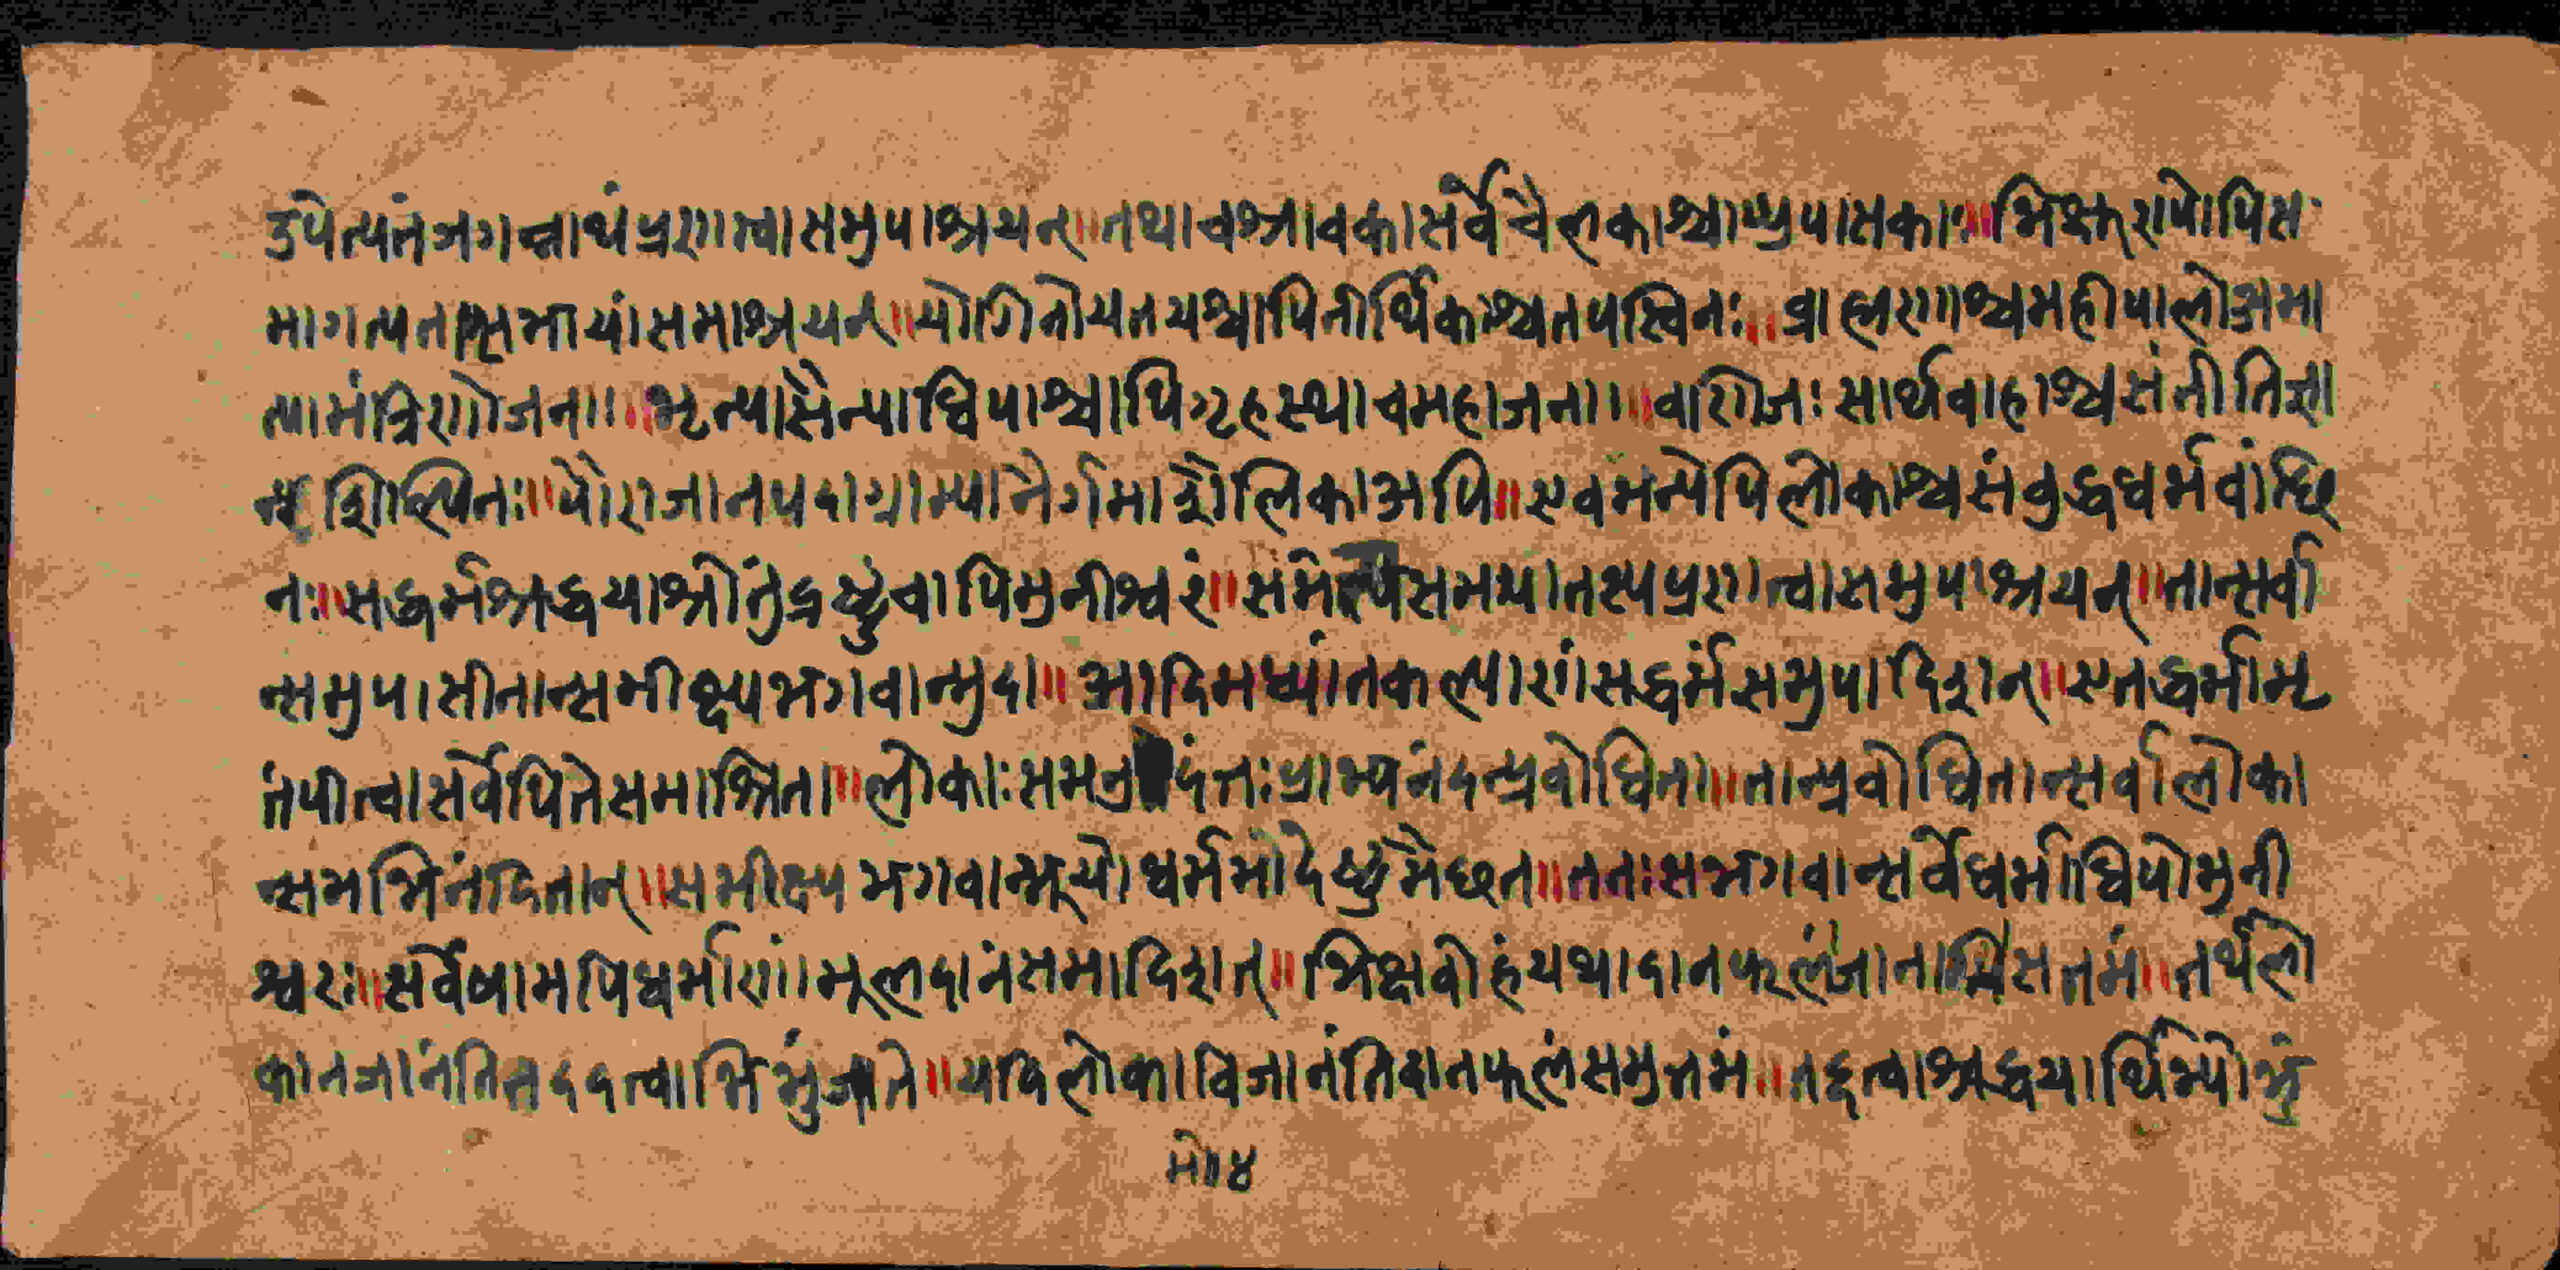 उपेत्यतंजगन्नाथंप्रणत्वासमुपाश्रयन्॥तथाचश्रावकासर्वेचैलकाश्चाप्युपासकाः॥भिक्षुरापेपित
मागत्यतत्सभायांसमाश्रयन्॥योगिनोयतयश्चापितीर्थिकाश्चतपस्विनः॥व्राह्मणाश्चमहीपालोअमा
त्यामंत्रिणोजनाः॥भृत्यासैन्याधिपाश्चापिगृहस्थाचमहाजनाः॥वाणिजःसार्थवाहाश्चसंनीतिज्ञा
शिल्पिनः॥पौराजानपदाग्राम्यानैर्गमाशैलिकाअपि॥एवमन्येपिलोकाश्चसंवुद्धधर्मवांछि
नः॥सद्धर्मश्रद्धयाश्रोतुंद्रष्टुंचापिमुनीश्वरं॥संमेत्यसमयातस्यप्रणत्वासमुपाश्रयन्॥तान्सर्वा
न्समुपासीतान्समीक्ष्यभगवान्मुदा॥आदिमध्यांतकल्याणंसद्धर्मंसमुपादिशन्॥एतद्धर्मामृ
तंपीत्वासर्वेपितेसमाश्रिता॥लोकाःसमनुदंतःप्राभ्यनंदन्प्रवोधिता॥तान्प्रवोधितान्सर्वालोका
न्समभिनंदितान्॥समीक्ष्यभगवान्भूयोधर्ममोदेष्टुमैछत॥ततःसभगवान्सर्वेधर्माधिपोमुनी
श्वरः॥सर्वेषामपिधर्माणांमूलदानंसमादिशत्॥भिक्षवोहंयथादानफलंजानामिसतमं॥तथैलो
कानजानंतितददत्वाभिभुंजाते॥यदिलोकाविजानंतिदानफलंसमुत्तमं॥तद्दत्वाश्रद्धयार्थिभ्योभुं
मे॥४